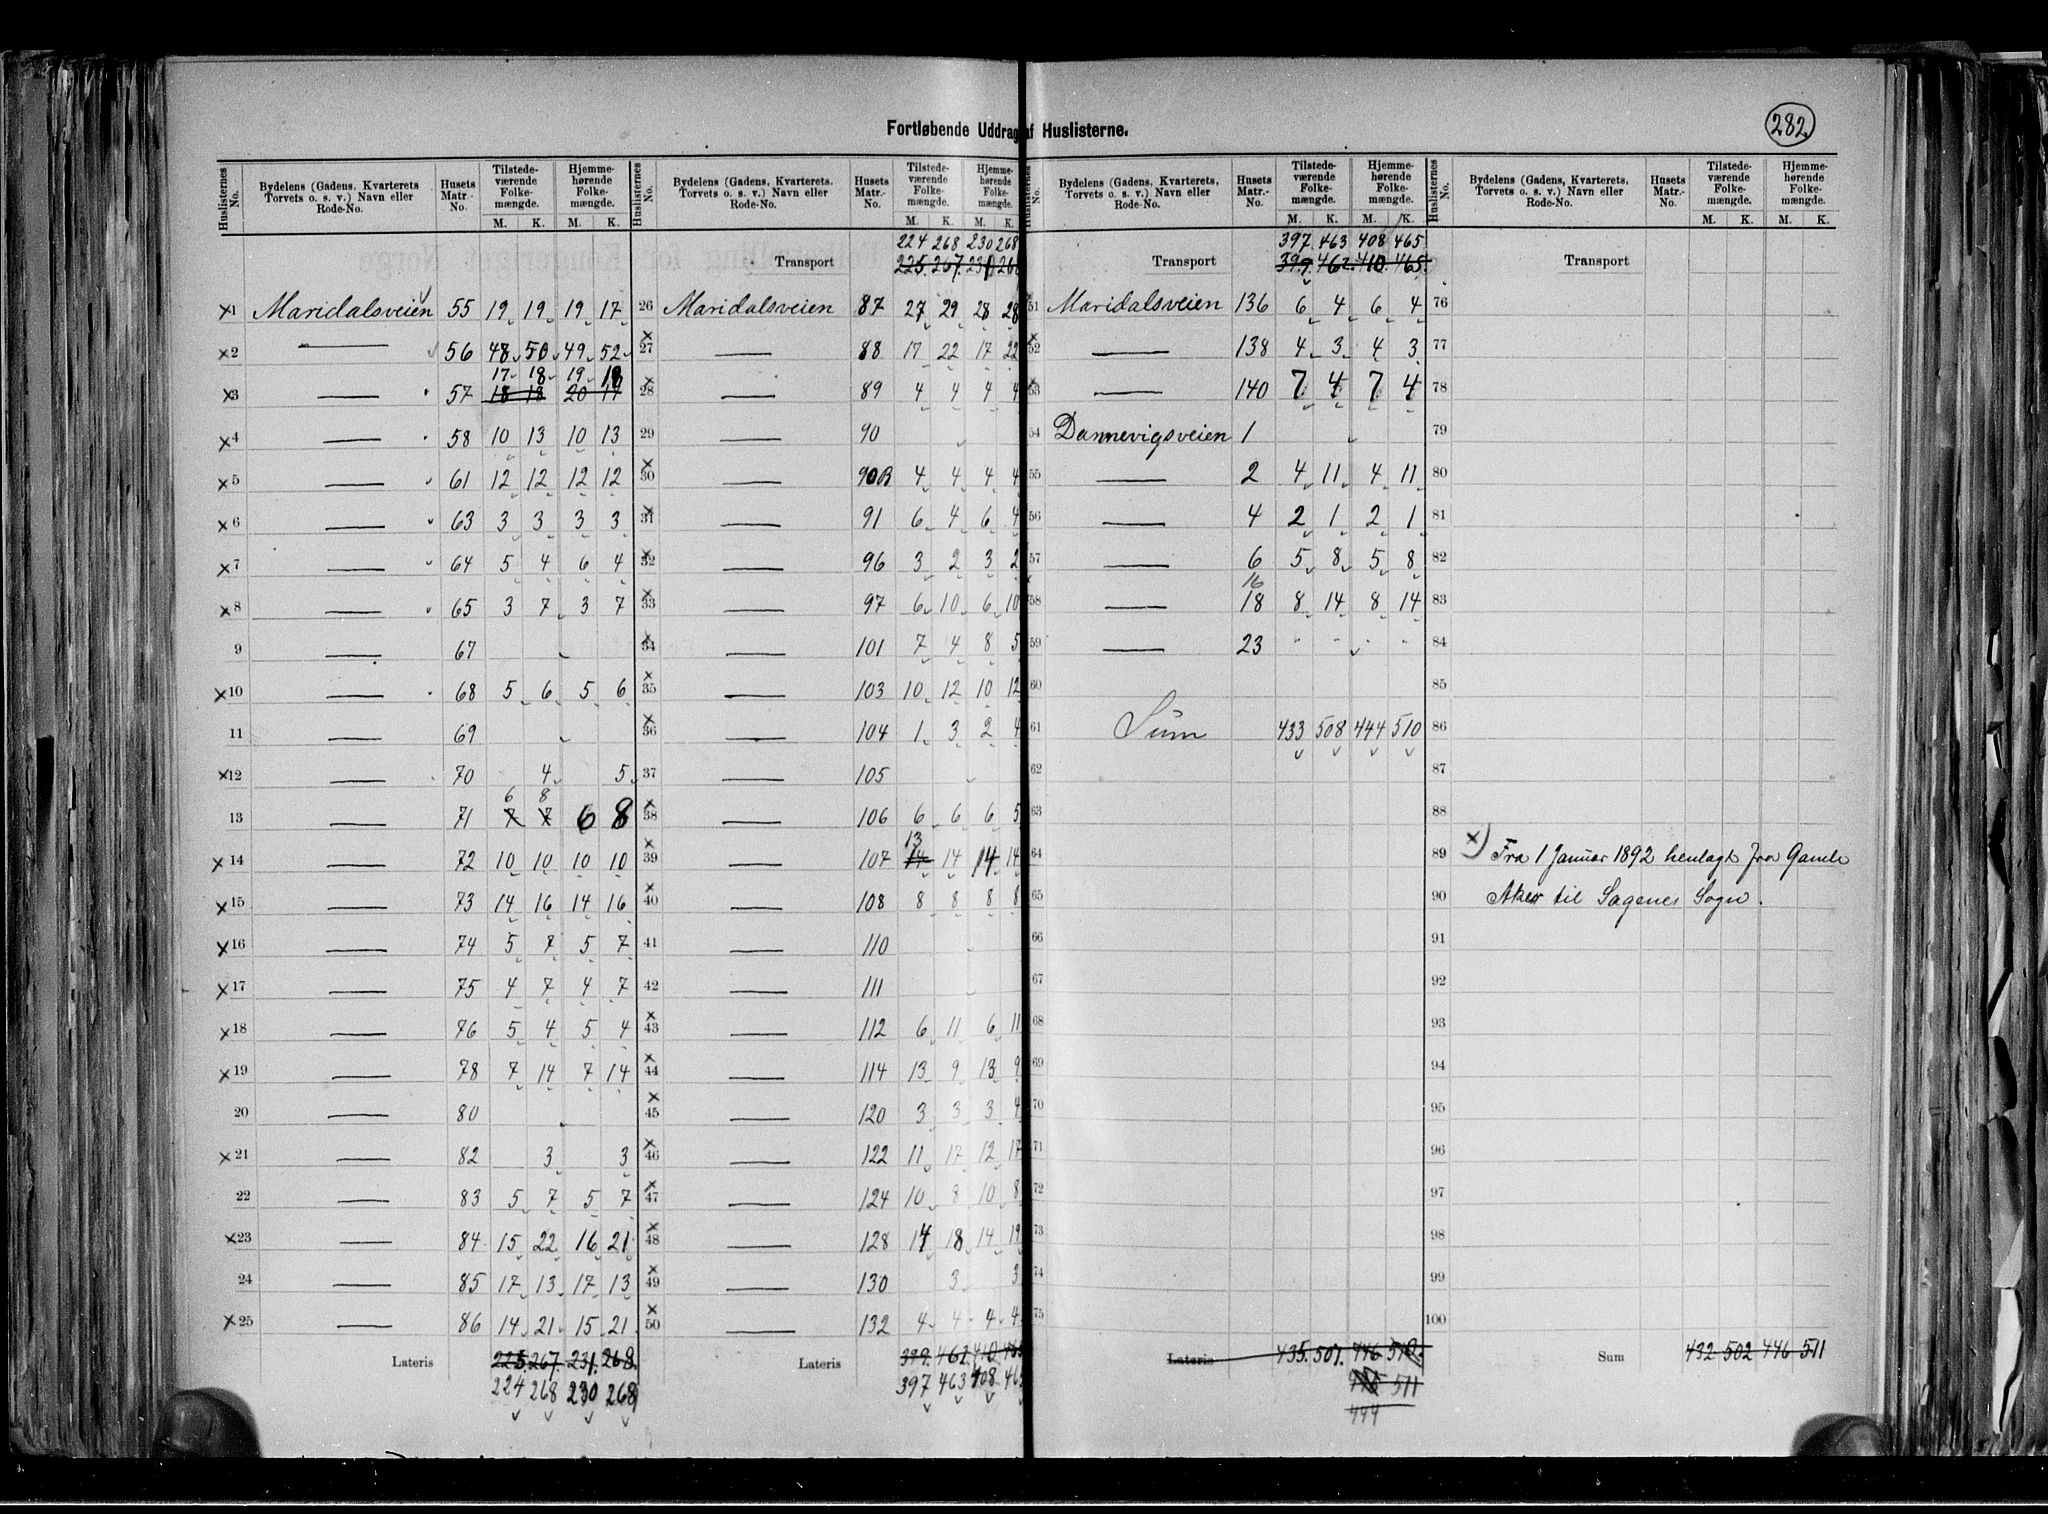 Fortløbende Uddrag af Huslisterne.
282.
Huslisternes No. | Bydelens (Gadens, Kvarterets, Torvets o. s. v.) Navn eller Rode-No. | Husets Matr.-No. | Tilstedeværende Folkemængde. M. K. | Hjemmehørende Folkemængde. M. K.
×1 Maridalsveien 55 19 19 19 17
×2 — 56 48 50 49 52
17 18 19 18
×3 — 57 18 18 20 17
×4 — 58 10 13 10 13
×5 — 61 12 12 12 12
×6 — 63 3 3 3 3
×7 — 64 5 4 6 4
×8 — 65 3 7 3 7
9 — 67
×10 — 68 5 6 5 6
11 — 69
×12 — 70 4 5
6 8
13 — 71 7 7 6 8
×14 — 72 10 10 10 10
×15 — 73 14 16 14 16
×16 — 74 5 7 5 7
×17 — 75 4 7 4 7
×18 — 76 5 4 5 4
×19 — 78 7 14 7 14
20 — 80
×21 — 82 3 3
22 — 83 5 7 5 7
×23 — 84 15 22 16 21
24 — 85 17 13 17 13
×25 — 86 14 21 15 21
Lateris 225 267 231 268
224 268 230 268
Huslisternes No. | Bydelens (Gadens, Kvarterets, Torvets o. s. v.) Navn eller Rode-No. | Husets Matr.-No. | Tilstedeværende Folkemængde. M. K. | Hjemmehørende Folkemængde. M. K.
224 268 230 268
Transport 225 267 231 268
26 Maridalsveien 87 27 29 28 28
×27 — 88 17 22 17 22
×28 — 89 4 4 4 4
29 — 90
×30 — 90B 4 4 4 4
×31 — 91 6 4 6 4
×32 — 96 3 2 3 2
×33 — 97 6 10 6 10
×34 — 101 7 4 8 5
×35 — 103 10 12 10 12
×36 — 104 1 3 2 4
37 — 105
×38 — 106 6 6 6 5
13
×39 — 107 14 14 14 14
×40 — 108 8 8 8 8
41 — 110
42 — 111
×43 — 112 6 11 6 11
×44 — 114 13 9 13 9
×45 — 120 3 3 3 4
×46 — 122 11 17 12 17
×47 — 124 10 8 10 8
×48 — 128 14 18 14 19
×49 — 130 3 3
×50 — 132 4 4 4 4
Lateris 399 462 410 465
397 463 408 465
Huslisternes No. | Bydelens (Gadens, Kvarterets, Torvets o. s. v.) Navn eller Rode-No. | Husets Matr.-No. | Tilstedeværende Folkemængde. M. K. | Hjemmehørende Folkemængde. M. K.
397 463 408 465
Transport 399 462 410 465
×51 Maridalsveien 136 6 4 6 4
×52 — 138 4 3 4 3
×53 — 140 7 4 7 4
54 Dannevigsveien 1
55 — 2 4 11 4 11
56 — 4 2 1 2 1
57 — 6 5 8 5 8
16
×58 — 18 8 14 8 14
59 — 23 " " " "
60
61 Sum 433 508 444 510
62
63
64
65
66
67
68
69
70
71
72
73
74
75
Lateris 435 507 446 510
445 511
444
Huslisternes No. | Bydelens (Gadens, Kvarterets, Torvets o. s. v.) Navn eller Rode-No. | Husets Matr.-No. | Tilstedeværende Folkemængde. M. K. | Hjemmehørende Folkemængde. M. K.
Transport
76
77
78
79
80
81
82
83
84
85
86
87
88
89 ×) Fra 1 Januar 1892 henlagt fra Gamle
90 Aker til Sagenes Sogn.
91
92
93
94
95
96
97
98
99
100
Sum 432 502 446 511